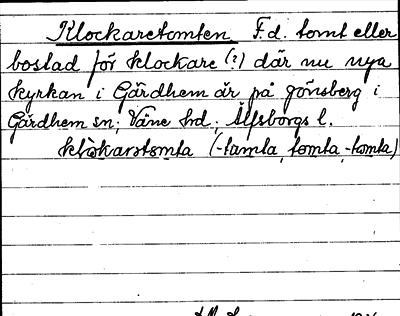 Klockaretomten F.d. tomt eller
bostad för klockare (?) där nu nya
kyrkan i Gärdhem är på gönsberg i
Gärdhem sn; Väne hrd; Älfsborgs l.
klåkarstomta (-tamta, tomta, -tomta)